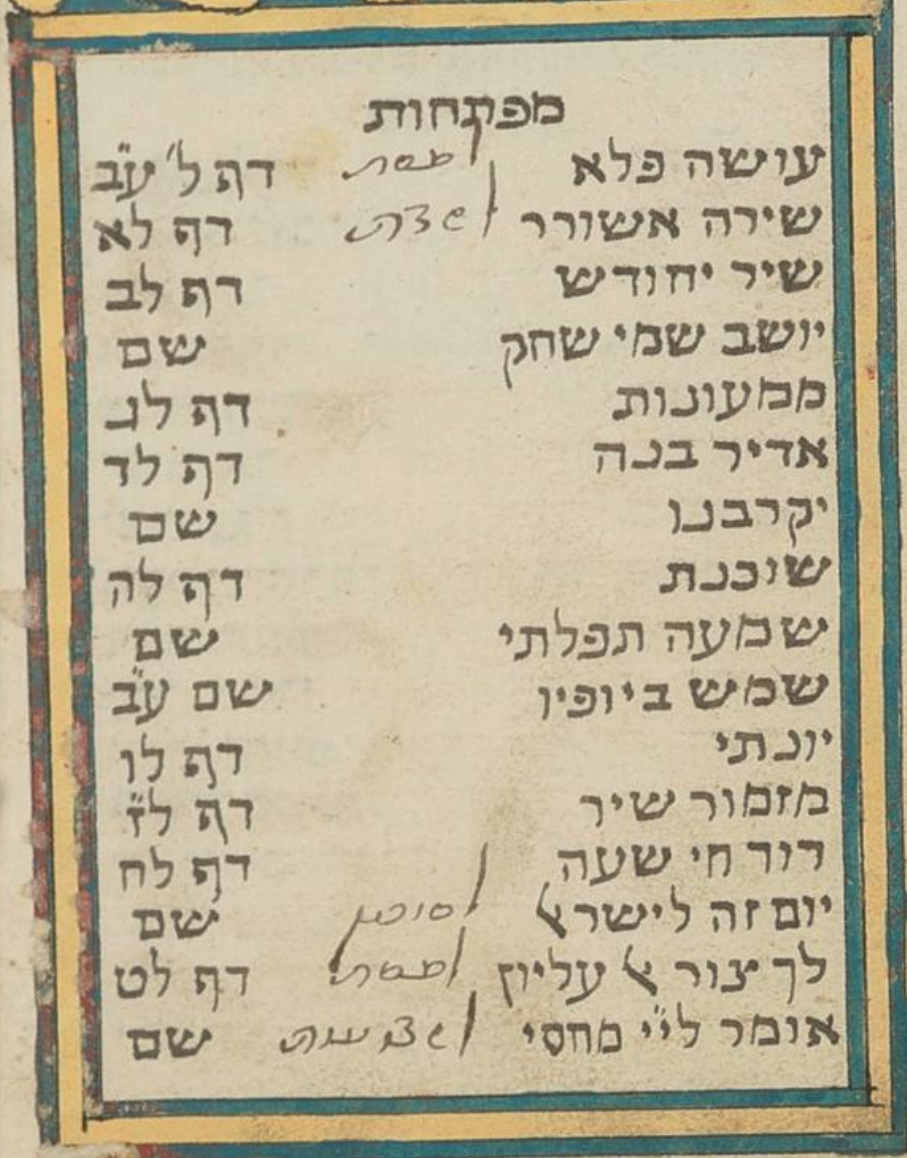 מפתחות
עושה פלא לשבת דף ל' ע״ב
שירה אשורר דף לא
שיר יחודש דף לב
יושב שמי שחק שם
ממעונות דף לג
אדיר בנה דף לד
יקרבנו שם
שוכנת דף לה
שמעה תפלתי שם
שמש ביופיו שם ע״ב
יונתי דף לו
מזמור שיר דף לז
דוד חי שעה דף לח
יום זה לישראל שם
לך צור אל עליון לשבת דף לט
אומר ליי מחסי שם